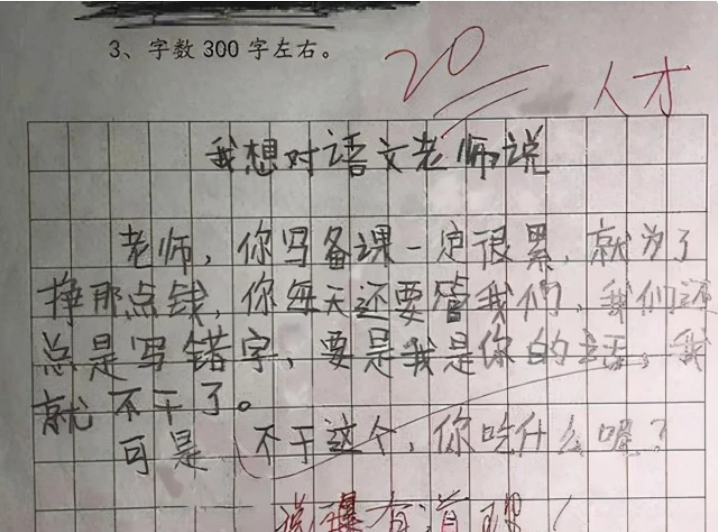 3、字数 300 字左右。
20
人才
我想对语文老师说
老师，你写备课一定很累，就为了
挣那点钱，你每天还要管我们，我们还
总是写错字，要是我是你的话，我
就不干了。
可是 不干这个，你吃什么呢？
说 有道理！